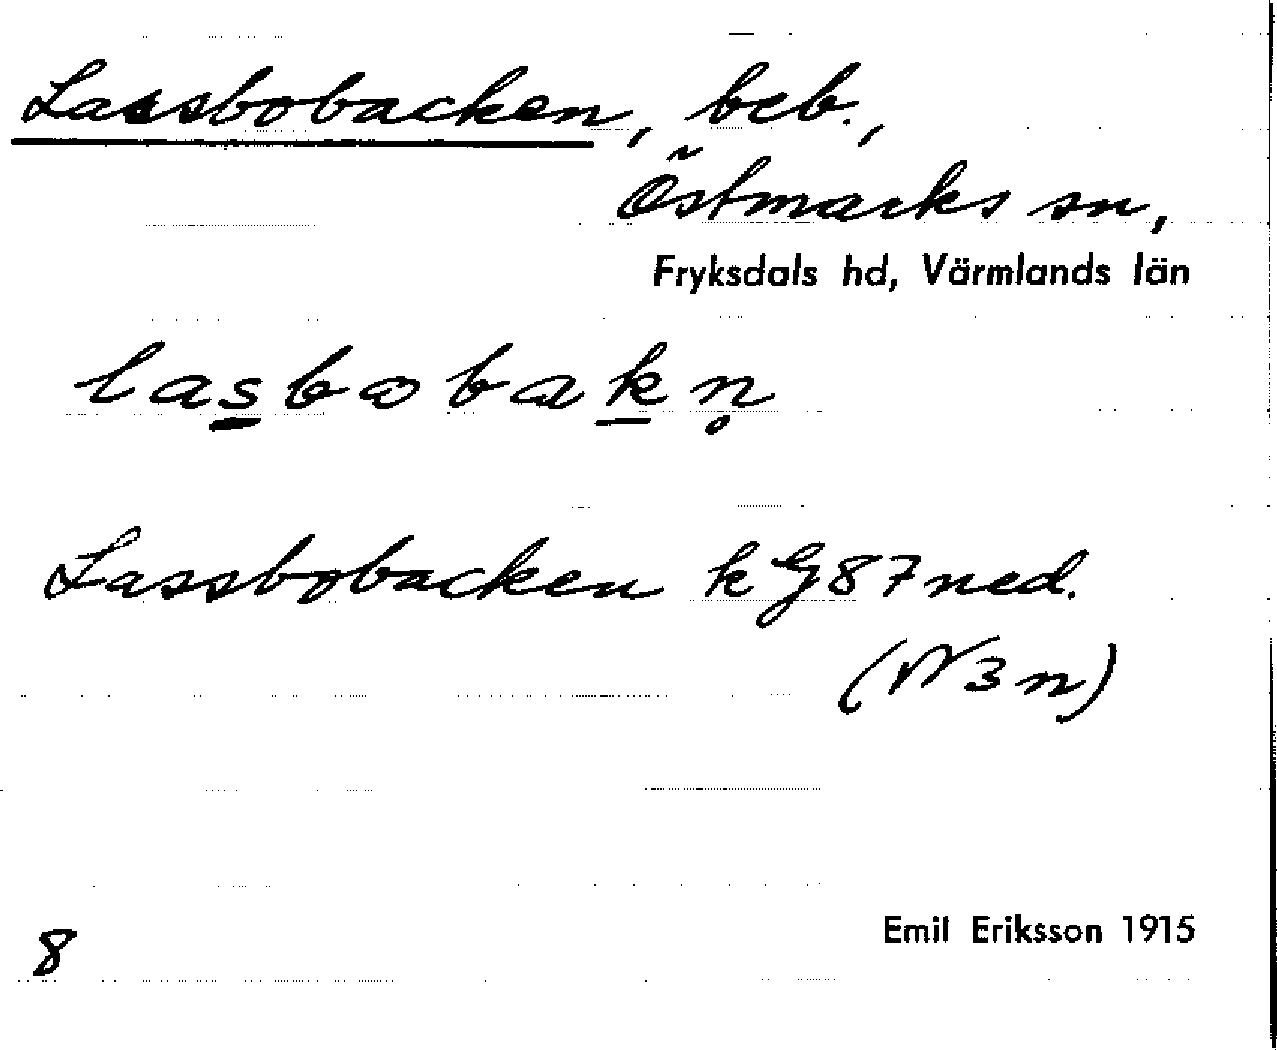 Lassbobacken, beb.,
Östmarks sn,
Fryksdals hd, Värmlands län
lasbobakn̥
Lassbobacken kG87ned.
(W3n)
8
Emil Eriksson 1915